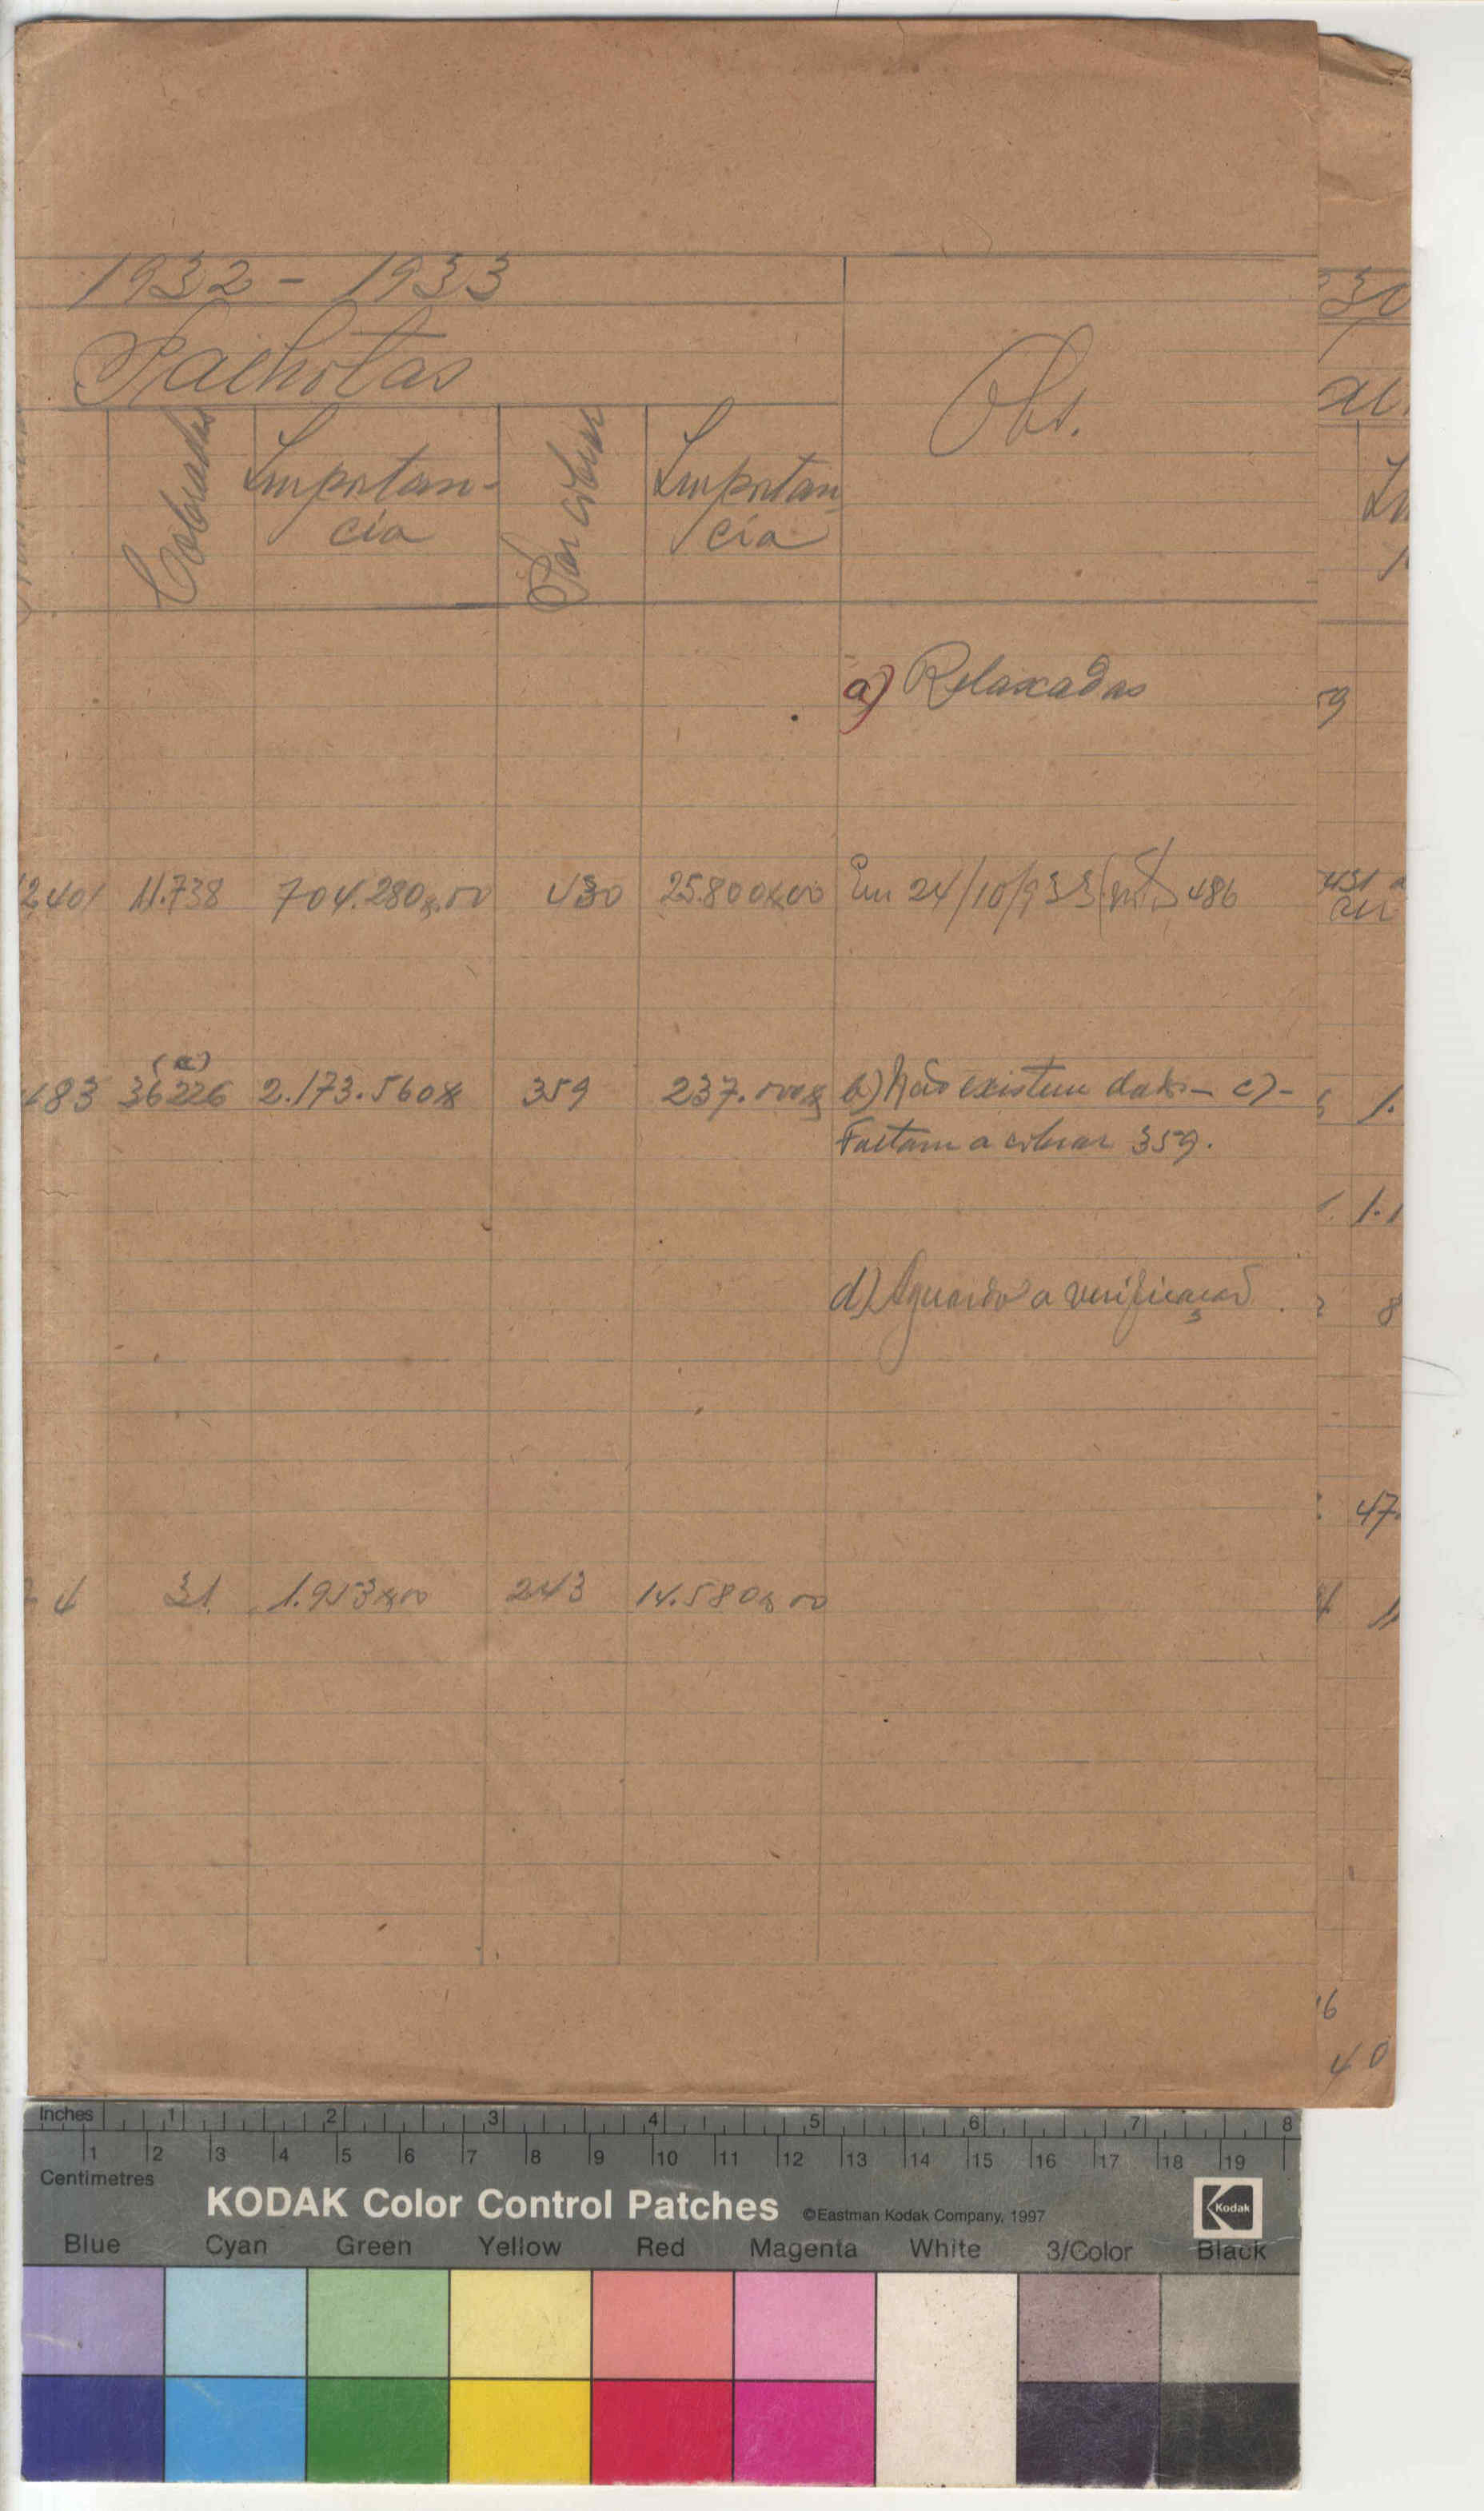 1932 - 1933
Palhotas
Obs.
Cobradas
Importan-
cia
Por cobrar
Importan
cia
a) Relaxadas
2401 11.738 704.280$00 430 25.800$00 Em 24/10/933 486
(c)
483 36226 2.173.560$ 359 237.000$ b) Não existem dados - c) -
Faltam a cobrar 359.
d) Aguardo a verificação.
4 31 1.953$00 243 14.580$00
30
al
59
431 a
1.
1.1
8
47
16
40
Inches 1 2 3 4 5 6 7 8
1 2 3 4 5 6 7 8 9 10 11 12 13 14 15 16 17 18 19
Centimetres
KODAK Color Control Patches ©Eastman Kodak Company, 1997 Kodak
Blue Cyan Green Yellow Red Magenta White 3/Color Black